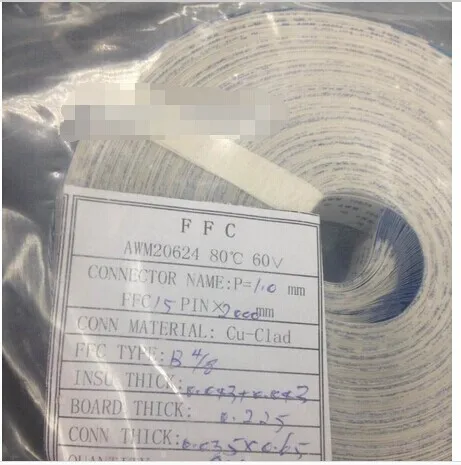 FFC
AWM20624 80℃ 60V
CONNECTOR NAME:P=1.0 mm
FFC 15 PIN×2000mm
CONN MATERIAL: Cu-Clad
FFC TYPE: B 4/8
INSU THICK: 0.043+0.043
BOARD THICK: 0.225
CONN THICK: 0.035×0.65